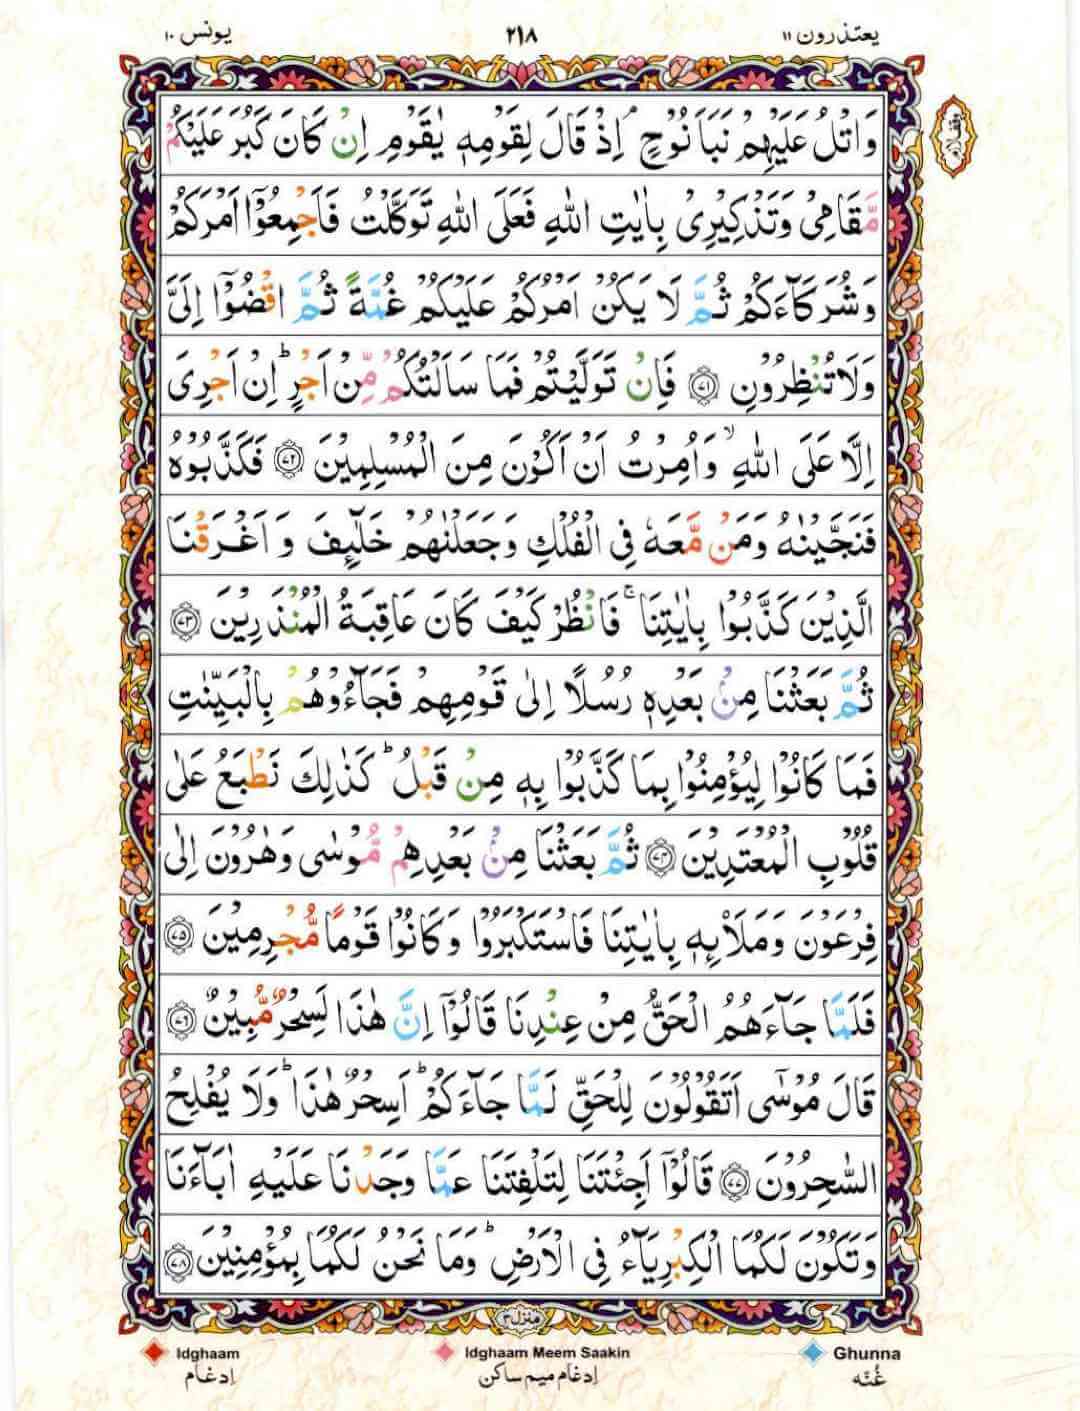 یعتذرون ۱۱
۲۱۸
یونس ۱۰
وقف لازم
وَاتْلُ عَلَيْهِمْ نَبَاَ نُوْحٍ ۘ اِذْ قَالَ لِقَوْمِهٖ يٰقَوْمِ اِنْ كَانَ كَبُرَ عَلَيْكُمْ
مَّقَامِيْ وَتَذْكِيْرِيْ بِاٰيٰتِ اللّٰهِ فَعَلَى اللّٰهِ تَوَكَّلْتُ فَاَجْمِعُوْٓا اَمْرَكُمْ
وَشُرَكَآءَكُمْ ثُمَّ لَا يَكُنْ اَمْرُكُمْ عَلَيْكُمْ غُمَّةً ثُمَّ اقْضُوْٓا اِلَيَّ
وَلَا تُنْظِرُوْنِ ﴿۷۱﴾ فَاِنْ تَوَلَّيْتُمْ فَمَا سَاَلْتُكُمْ مِّنْ اَجْرٍ ؕ اِنْ اَجْرِيَ
اِلَّا عَلَى اللّٰهِ ۙ وَاُمِرْتُ اَنْ اَكُوْنَ مِنَ الْمُسْلِمِيْنَ ﴿۷۲﴾ فَكَذَّبُوْهُ
فَنَجَّيْنٰهُ وَمَنْ مَّعَهٗ فِي الْفُلْكِ وَجَعَلْنٰهُمْ خَلٰٓئِفَ وَاَغْرَقْنَا
الَّذِيْنَ كَذَّبُوْا بِاٰيٰتِنَا ۚ فَانْظُرْ كَيْفَ كَانَ عَاقِبَةُ الْمُنْذَرِيْنَ ﴿۷۳﴾
ثُمَّ بَعَثْنَا مِنْۢ بَعْدِهٖ رُسُلًا اِلٰى قَوْمِهِمْ فَجَآءُوْهُمْ بِالْبَيِّنٰتِ
فَمَا كَانُوْا لِيُؤْمِنُوْا بِمَا كَذَّبُوْا بِهٖ مِنْ قَبْلُ ؕ كَذٰلِكَ نَطْبَعُ عَلٰى
قُلُوْبِ الْمُعْتَدِيْنَ ﴿۷۴﴾ ثُمَّ بَعَثْنَا مِنْۢ بَعْدِهِمْ مُّوْسٰى وَهٰرُوْنَ اِلٰى
فِرْعَوْنَ وَمَلَا۟ئِهٖ بِاٰيٰتِنَا فَاسْتَكْبَرُوْا وَكَانُوْا قَوْمًا مُّجْرِمِيْنَ ﴿۷۵﴾
فَلَمَّا جَآءَهُمُ الْحَقُّ مِنْ عِنْدِنَا قَالُوْٓا اِنَّ هٰذَا لَسِحْرٌ مُّبِيْنٌ ﴿۷۶﴾
قَالَ مُوْسٰٓى اَتَقُوْلُوْنَ لِلْحَقِّ لَمَّا جَآءَكُمْ ؕ اَسِحْرٌ هٰذَا ؕ وَلَا يُفْلِحُ
السّٰحِرُوْنَ ﴿۷۷﴾ قَالُوْٓا اَجِئْتَنَا لِتَلْفِتَنَا عَمَّا وَجَدْنَا عَلَيْهِ اٰبَآءَنَا
وَتَكُوْنَ لَكُمَا الْكِبْرِيَآءُ فِي الْاَرْضِ ؕ وَمَا نَحْنُ لَكُمَا بِمُؤْمِنِيْنَ ﴿۷۸﴾
منزل ۳
Idghaam
ادغام
Idghaam Meem Saakin
ادغام میم ساکن
Ghunna
غُنّہ